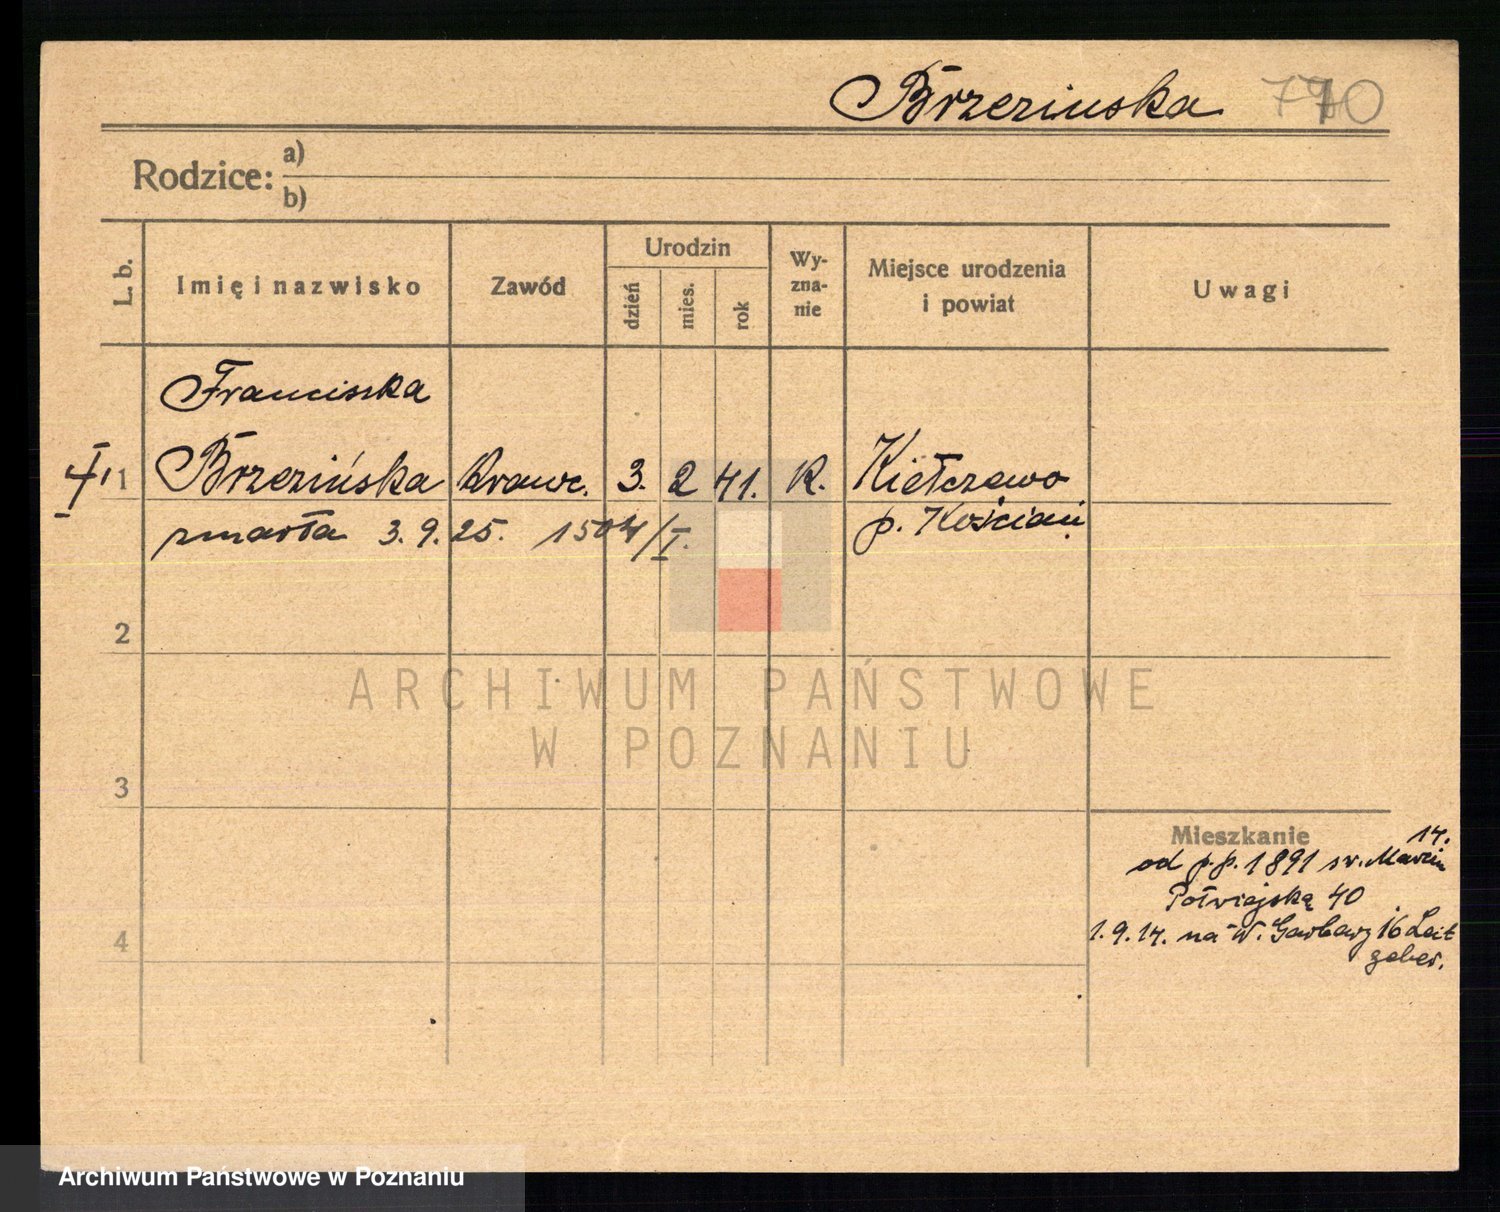 Brzezinska 770
Rodzice: a)
b)
L. b.
Imię i nazwisko
Zawód
Urodzin
dzień
mies.
rok
Wy-
zna-
nie
Miejsce urodzenia
i powiat
Uwagi
Franciszka
1 Brzezińska Krawc. 3. 2 41. K. Kiełczewo
zmarła 3.9.25. 1504/I. p. Kościan
2
3
4
Mieszkanie
14.
od p.p. 1891 św. Marcin
Półwiejską 40
1.9.14. na W. Garbary 16 Leit
geber.
ARCHIWUM PAŃSTWOWE
W POZNANIU
Archiwum Państwowe w Poznaniu